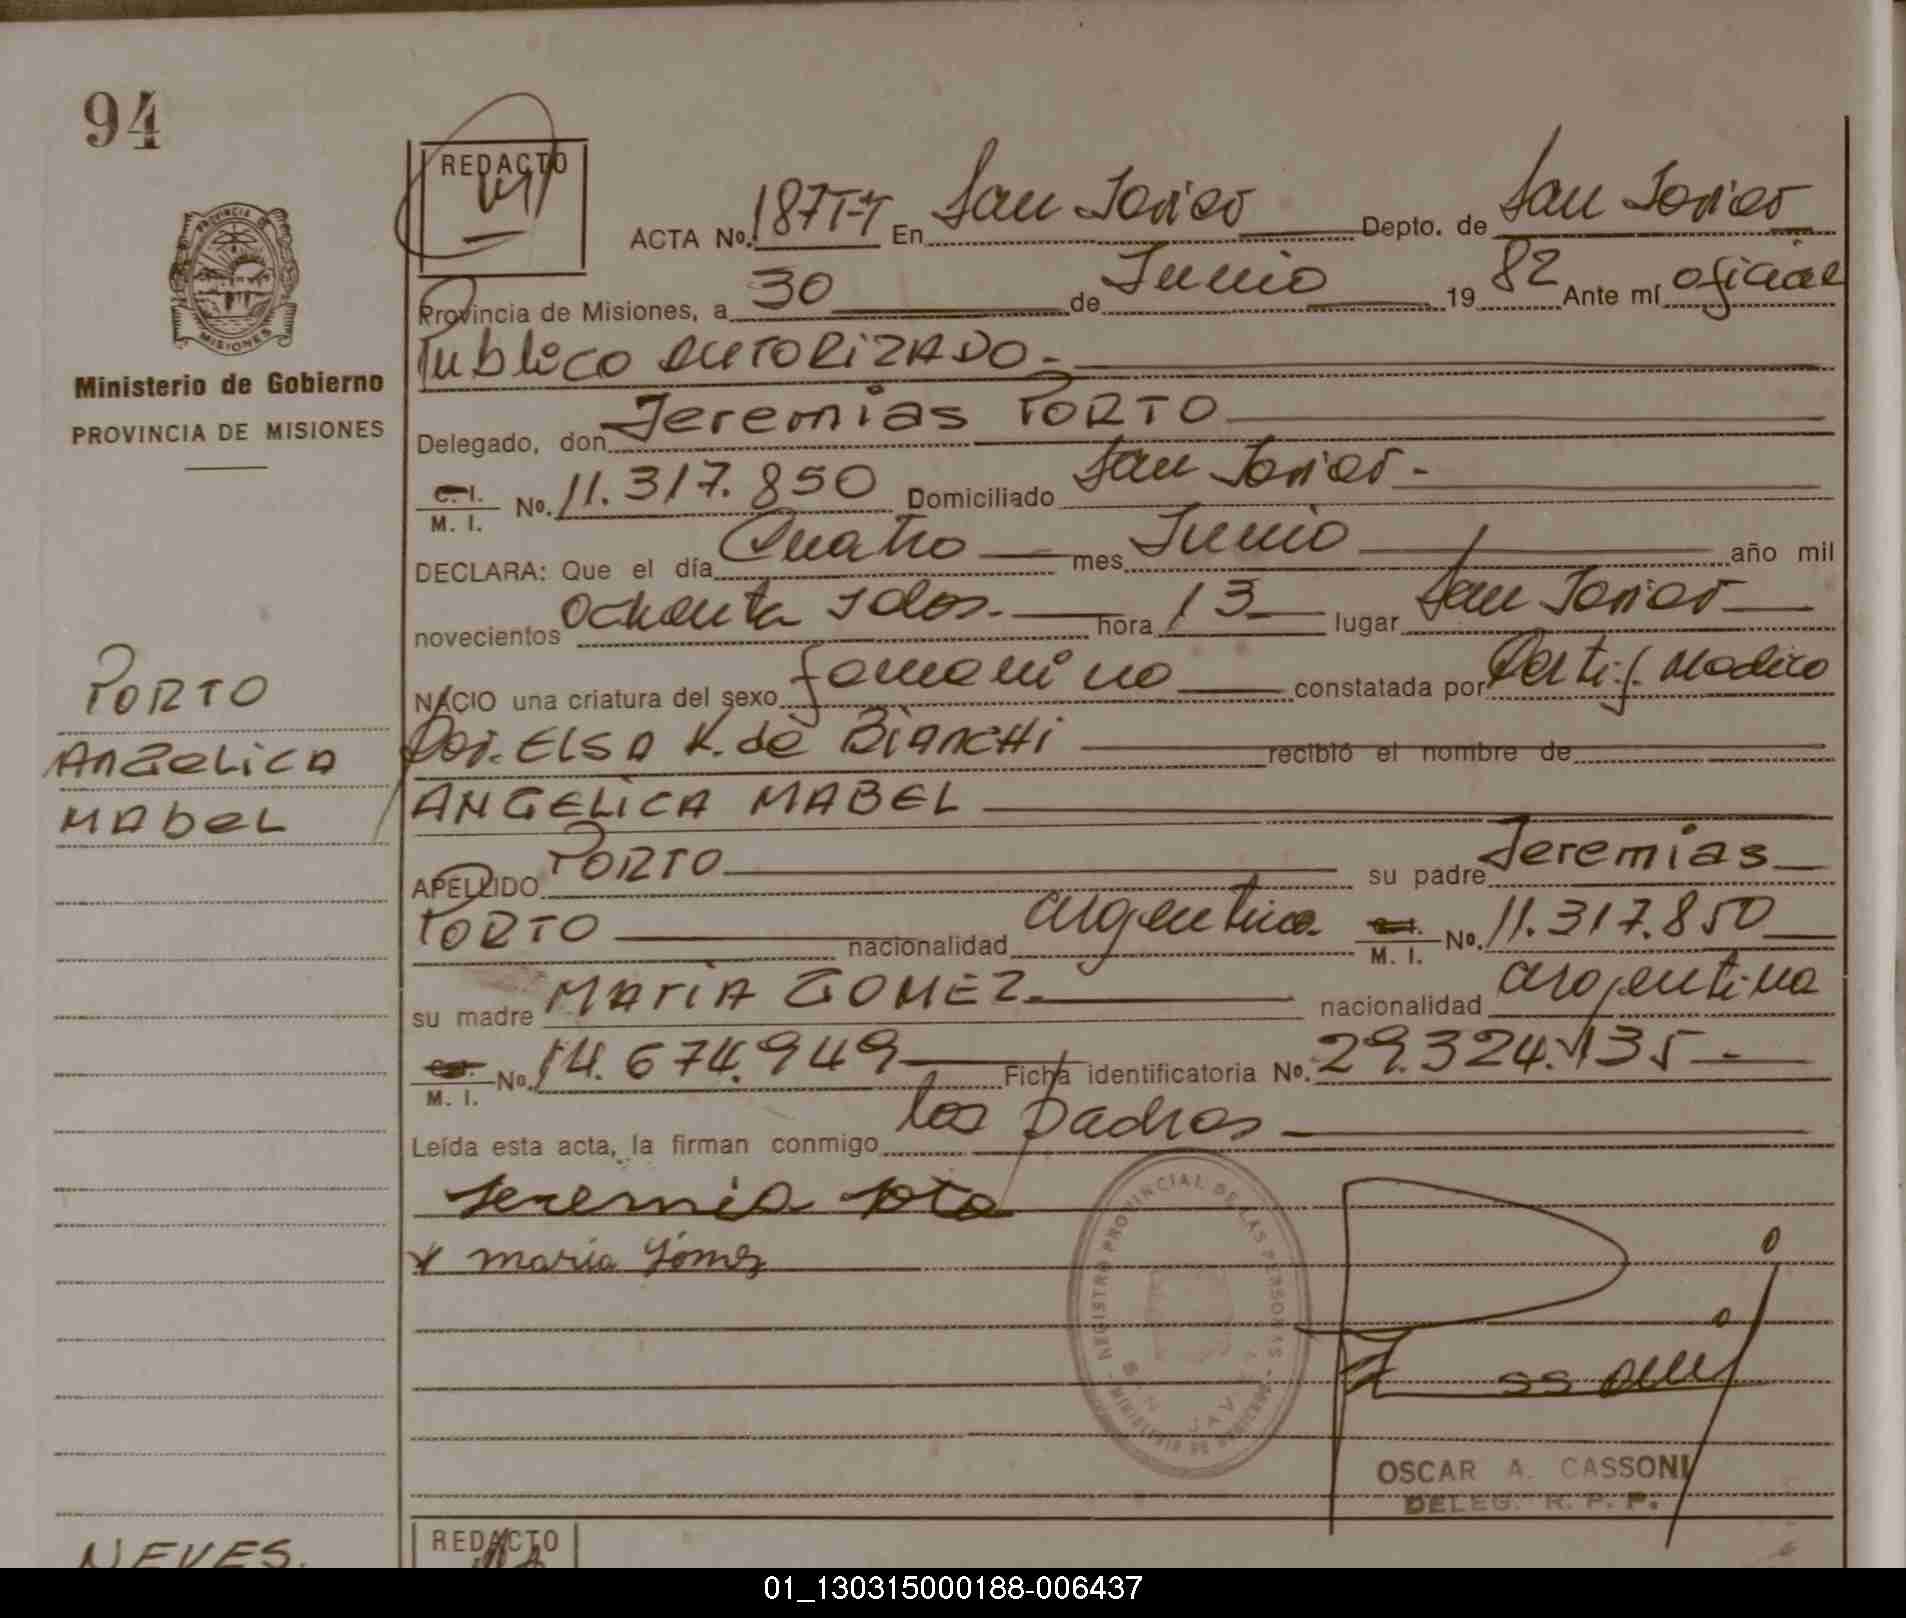 94
REDACTO
ACTA No. 187T-I En San Javier Depto. de San Javier
Provincia de Misiones, a 30 de Junio 19 82 Ante mí oficial
Publico AUTORIZADO.-
Ministerio de Gobierno
PROVINCIA DE MISIONES
Delegado, don Jeremias PORTO
C. I. M. I. No. 11.317.850 Domiciliado San Javier.-
DECLARA: Que el día Cuatro mes Junio año mil
novecientos ochenta y dos.- hora 13 lugar San Javier
NACIO una criatura del sexo femenino constatada por Certif. Medico
Por. ELSA K. de BIANCHI recibió el nombre de
ANGELICA MABEL
APELLIDO PORTO su padre Jeremias
PORTO nacionalidad argentina M. I. No. 11.317.850
su madre MARIA GOMEZ.- nacionalidad argentina
M. I. No. 14.674.949 Ficha identificatoria No. 29.324.135.-
Leída esta acta, la firman conmigo los padres
PORTO
ANGELICA
MABEL
Jeremia poto
x maria Gómez
REGISTRO PROVINCIAL DE LAS PERSONAS
MINISTERIO DE GOBIERNO
SAN JAVIER
OSCAR A. CASSONI
DELEG. R. P. P.
NEVES.
REDACTO
01_130315000188-006437